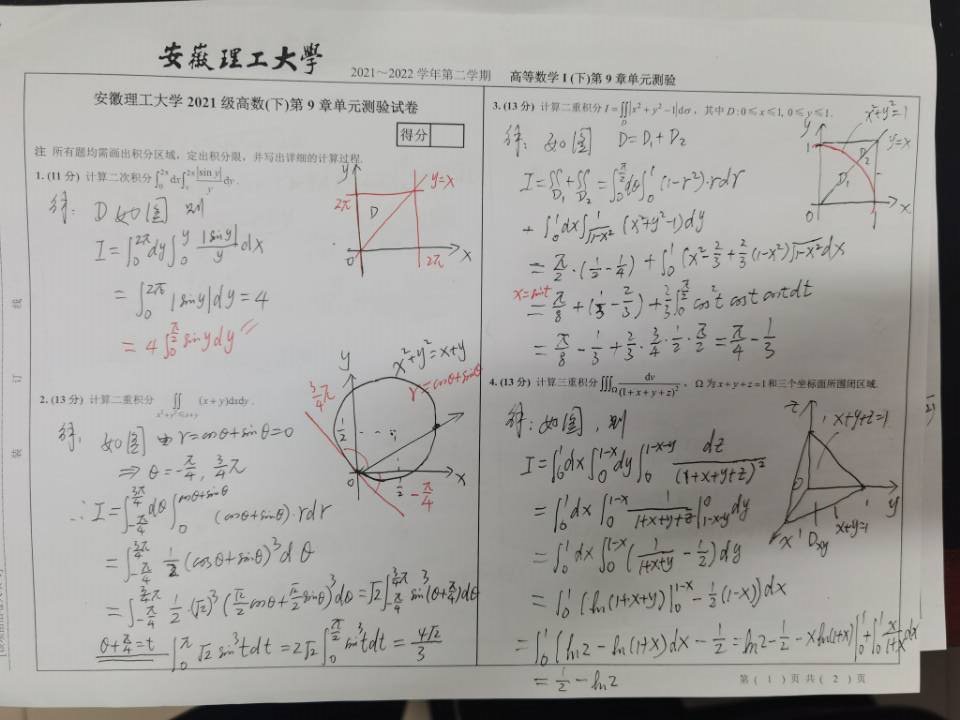 安徽理工大學
2021～2022 学年第二学期 高等数学 I (下) 第 9 章单元测验
安徽理工大学 2021 级高数(下)第 9 章单元测验试卷
得分
注 所有题均需画出积分区域，定出积分限，并写出详细的计算过程.
1. (11 分) 计算二次积分∫₀^{2π}dx∫ₓ^{2π}|sin y|/y dy.
解: D 如图 则
I = ∫₀^{2π}dy∫₀^y |sin y|/y dx
= ∫₀^{2π}|sin y|dy = 4
= 4∫₀^{π/2} sin y dy
y
2π
y=x
D
0
2π
x
2. (13 分) 计算二重积分 ∬_{x²+y²≤x+y} (x+y)dxdy.
解: 如图 由 r=cosθ+sinθ=0
⇒ θ=-π/4, 3/4π
∴ I = ∫_{-π/4}^{3π/4}dθ∫₀^{cosθ+sinθ} (cosθ+sinθ)·rdr
= ∫_{-π/4}^{3π/4} 1/2 (cosθ+sinθ)³dθ
= ∫_{-π/4}^{3/4π} 1/2·(√2)³(√2/2 cosθ+√2/2 sinθ)³dθ = √2∫_{-π/4}^{3/4π} sin³(θ+π/4)dθ
θ+π/4=t ∫₀^π √2 sin³t dt = 2√2∫₀^{π/2} sin³t dt = 4√2/3
y
x²+y²=x+y
r=cosθ+sinθ
3/4π
1/2
0
1/2
x
-π/4
3. (13 分) 计算二重积分 I=∬_D|x²+y²-1|dσ，其中 D: 0≤x≤1, 0≤y≤1.
解: 如图 D=D₁+D₂
I = ∬_{D₁}+∬_{D₂} = ∫₀^{π/2}dθ∫₀¹(1-r²)·rdr
+ ∫₀¹dx∫_{√(1-x²)}^1 (x²+y²-1)dy
= π/2·(1/2-1/4) + ∫₀¹[x²-2/3+2/3(1-x²)√(1-x²)]dx
x=sint = π/8+(1/3-2/3)+2/3∫₀^{π/2}cos²t cost cost dt
= π/8-1/3+2/3·3/4·1/2·π/2 = π/4-1/3
x²+y²=1
y
1
y=x
D₂
D₁
0
1
x
4. (13 分) 计算三重积分∭_Ω dv/(1+x+y+z)²，Ω 为 x+y+z=1和三个坐标面所围闭区域.
解: 如图, 则
I = ∫₀¹dx∫₀^{1-x}dy∫₀^{1-x-y} dz/(1+x+y+z)²
= ∫₀¹dx∫₀^{1-x} 1/(1+x+y+z)|_{1-x-y}^0 dy
= ∫₀¹dx∫₀^{1-x}(1/(1+x+y)-1/2)dy
= ∫₀¹(ln(1+x+y)|₀^{1-x}-1/2(1-x))dx
= ∫₀¹(ln2-ln(1+x))dx-1/2=ln2-1/2-xln(1+x)|₀¹+∫₀¹x/(1+x)dx
= 1/2-ln2
z
1
x+y+z=1
0
1
y
x
1
D_{xy}
x+y=1
线
订
装
第 ( 1 ) 页 共 ( 2 ) 页